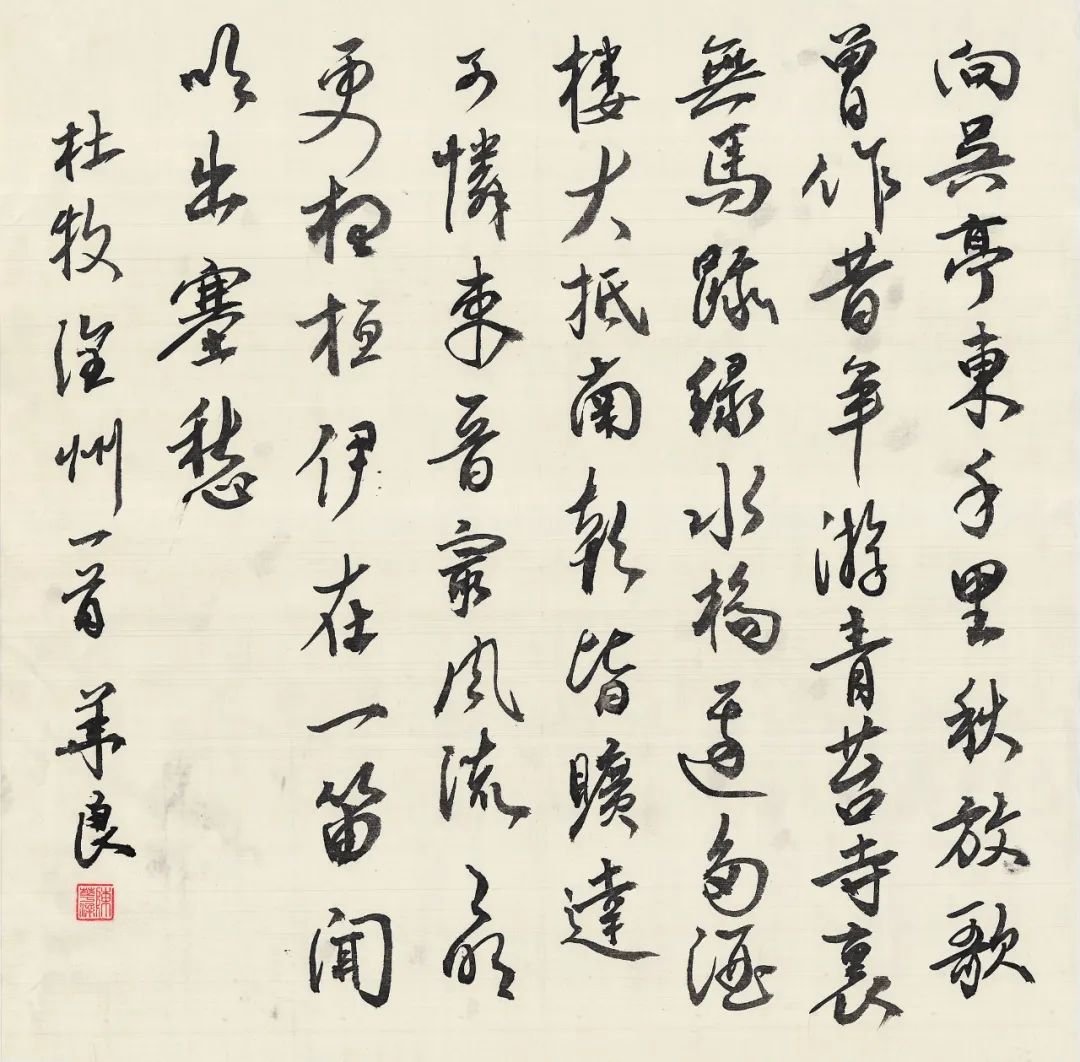 向吳亭東千里秋放歌
曾作昔年游青苔寺裏
無馬跡綠水橋邊多酒
樓大抵南朝皆曠達
可憐東晉最風流月明
更想桓伊在一笛聞
吹出塞愁
杜牧潤州一首 華良